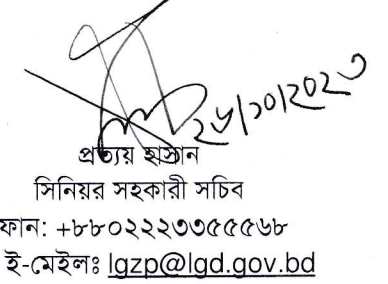 ২৬/১০/২০২৩
প্রত্যয় হাসান
সিনিয়র সহকারী সচিব
ফোন: +৮৮০২২২৩৩৫৫৫৬৮
ই-মেইলঃ lgzp@lgd.gov.bd